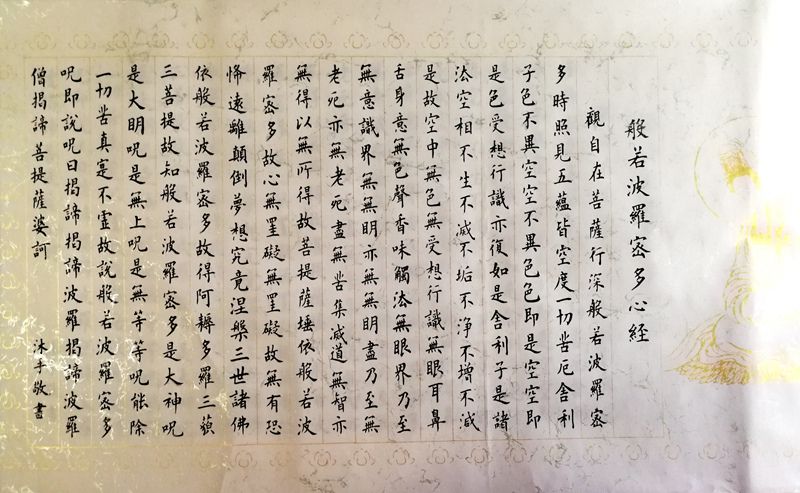 般若波羅密多心経
觀自在菩薩行深般若波羅密
多時照見五蘊皆空度一切苦厄舍利
子色不異空空不異色色即是空空即
是色受想行識亦復如是舍利子是諸
法空相不生不滅不垢不浄不增不減
是故空中無色無受想行識無眼耳鼻
舌身意無色聲香味觸法無眼界乃至
無意識界無無明亦無無明盡乃至無
老死亦無老死盡無苦集滅道無智亦
無得以無所得故菩提薩埵依般若波
羅密多故心無罣礙無罣礙故無有恐
怖遠離顛倒夢想究竟涅槃三世諸佛
依般若波羅密多故得阿耨多羅三藐
三菩提故知般若波羅密多是大神呪
是大明呪是無上呪是無等等呪能除
一切苦真寔不虛故說般若波羅密多
呪即說呪曰揭諦揭諦波羅揭諦波羅
僧揭諦菩提薩婆訶
沐手敬書